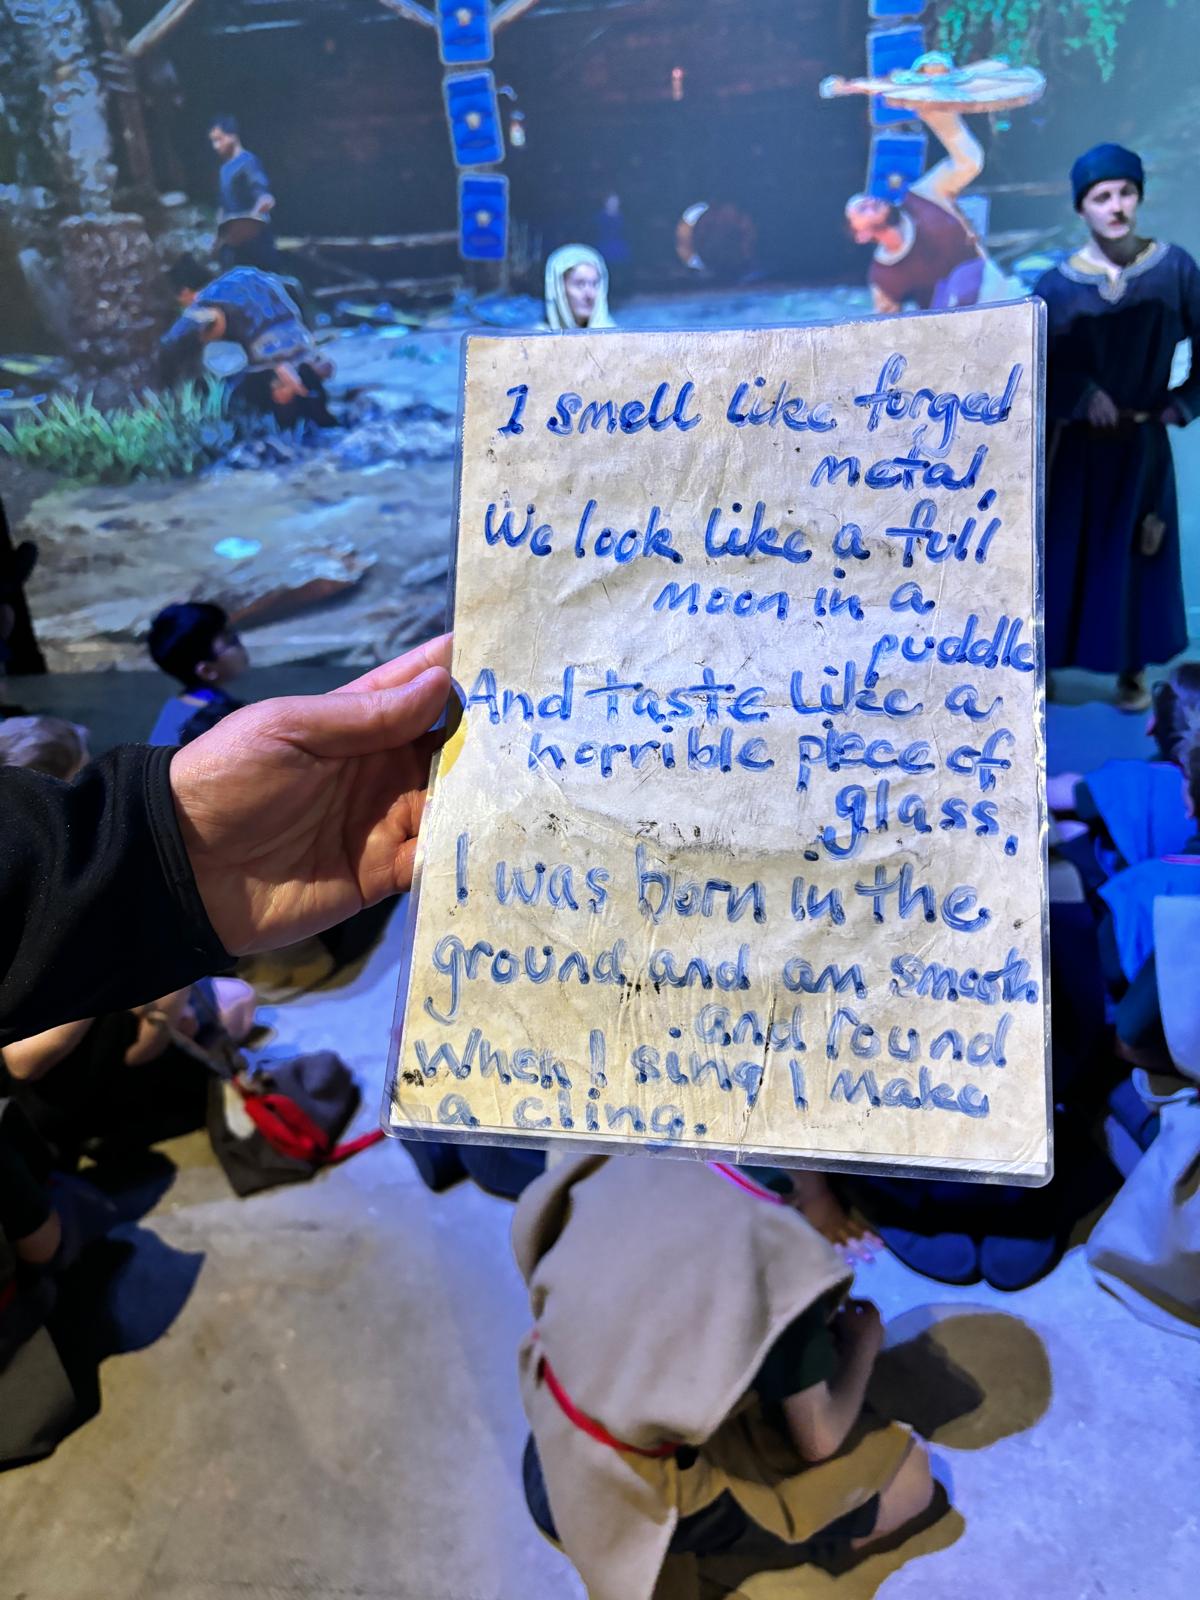 I smell like forged
metal,
We look like a full
moon in a
puddle
And taste like a
horrible piece of
glass,
I was born in the
ground and am smooth
and round
When I sing I make
a cling.